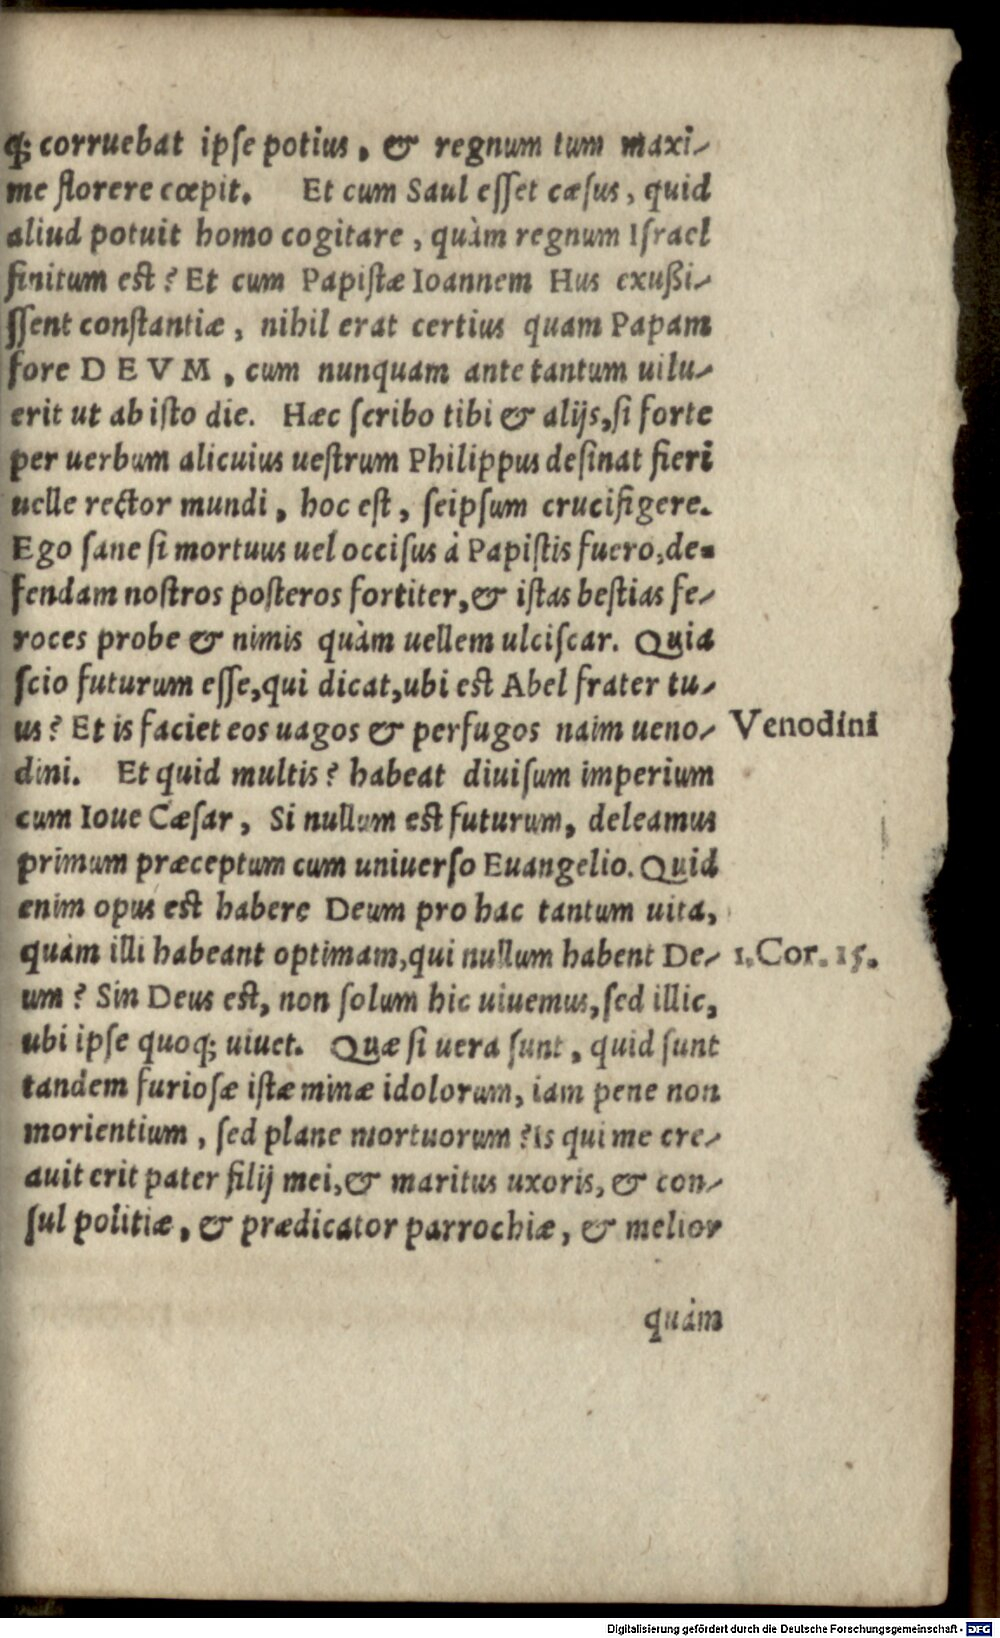 q́; corruebat ipse potius, & regnum tum maxi-
me florere cœpit. Et cum Saul eſſet cæſus, quid
aliud potuit homo cogitare, quàm regnum Iſrael
finitum eſt? Et cum Papiſtæ Ioannem Hus exußi-
ſſent conſtantiæ, nihil erat certius quam Papam
fore DEVM, cum nunquam ante tantum uilu-
erit ut ab iſto die. Hæc ſcribo tibi & alijs, ſi forte
per uerbum alicuius ueſtrum Philippus deſinat fieri
uelle rector mundi, hoc eſt, ſeipſum crucifigere.
Ego ſane ſi mortuus uel occiſus à Papiſtis fuero, de-
fendam noſtros poſteros fortiter, & iſtas beſtias fe-
roces probe & nimis quàm uellem ulciſcar. Quia
ſcio futurum eſſe, qui dicat, ubi eſt Abel frater tu-
us? Et is faciet eos uagos & perfugos naim ueno- Venodini
dini. Et quid multis? habeat diuiſum imperium
cum Ioue Cæſar, Si nullum eſt futurum, deleamus
primum præceptum cum uniuerſo Euangelio. Quid
enim opus eſt habere Deum pro hac tantum uita,
quàm illi habeant optimam, qui nullum habent De- 1. Cor. 15.
um? Sin Deus eſt, non ſolum hic uiuemus, ſed illic,
ubi ipſe quoq; uiuet. Quæ ſi uera ſunt, quid ſunt
tandem furioſæ iſtæ minæ idolorum, iam pene non
morientium, ſed plane mortuorum? Is qui me cre-
auit erit pater filij mei, & maritus uxoris, & con-
ſul politiæ, & prædicator parrochiæ, & melior
quàm
Digitalisierung gefördert durch die Deutsche Forschungsgemeinschaft - DFG